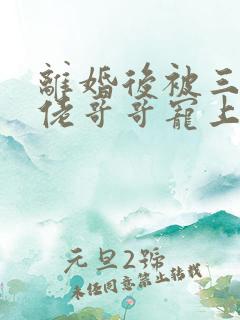 離婚後被三
佬哥哥寵上
元旦2號
未經同意禁止轉載